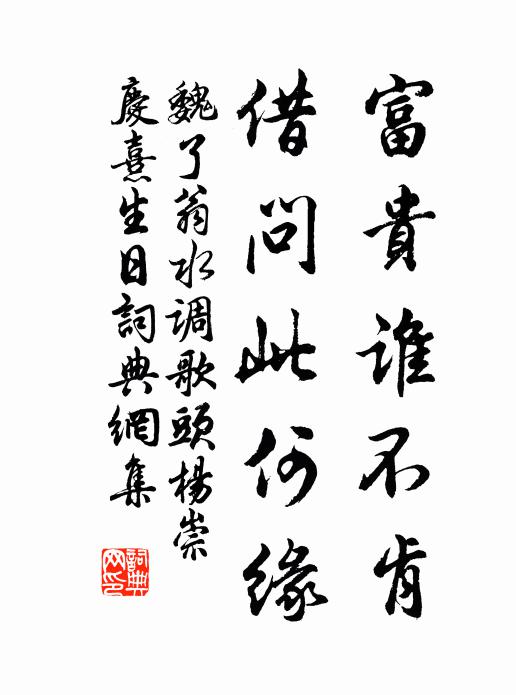 富貴誰不肯
借問此何緣
魏了翁水调歌頭楊崇
慶熹生日詞典網集
詞典網印